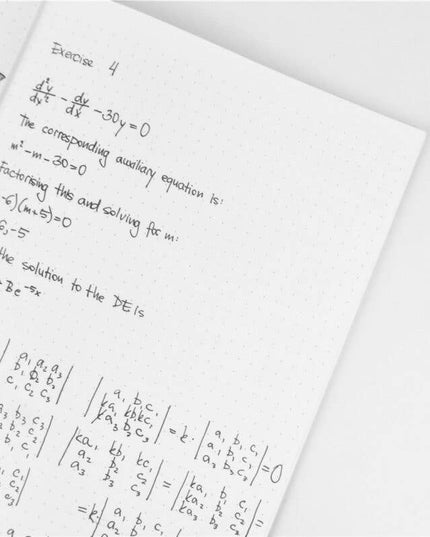 Exercise 4
d²y/dy² - dy/dx - 30y = 0
The corresponding auxiliary equation is:
m² - m - 30 = 0
Factorising this and solving for m:
-6)(m+5)=0
6, -5
the solution to the DE is
Be^-5x
| a₁ a₂ a₃ |
| b₁ b₂ b₃ |
| c₁ c₂ c₃ |
| a₁ b₁ c₁ |
| ka₁ kb₁ kc₁ | = k · | a₁ b₁ c₁ | = 0
| a₃ b₃ c₃ |
a₃ b₃ c₃ |
b₂ c₂ |
b₁ c₁ |
| ka₁ kb₁ kc₁ |
| a₂ b₂ c₂ | =
| a₃ b₃ c₃ |
| ka₁ b₁ c₁ |
| ka₂ b₂ c₂ | =
| ka₃ b₃ c₃ |
= k | a₁ b₁ c₁
a₂ b₂